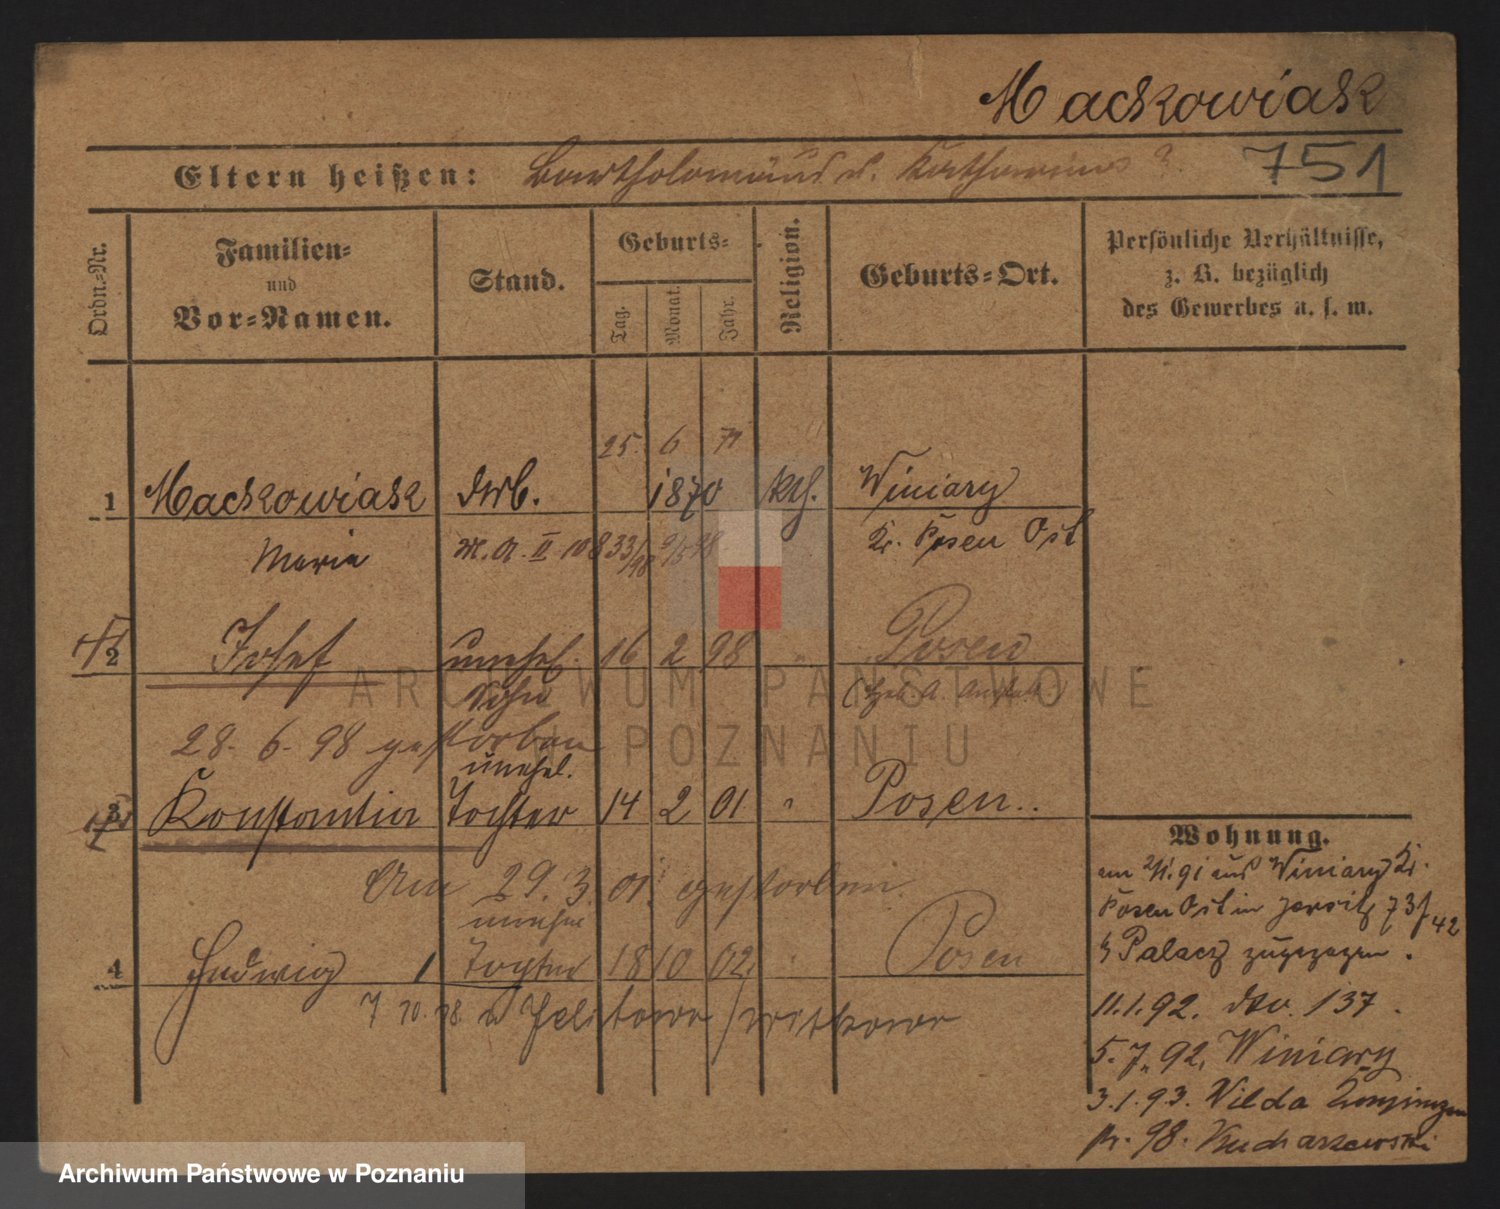 Mackowiak
751
Eltern heißen: Bartholomäus u. Katharina ?
Ordn.=Nr.
Familien=
und
Vor=Namen.
Stand.
Geburts=
Tag.
Monat.
Jahr.
Religion.
Geburts=Ort.
Persönliche Verhältnisse,
z. B. bezüglich
des Gewerbes u. s. w.
25. 6 71
1 Mackowiak 1870 kth. Winiary
Maria Kr. Posen Ost
2 Josef unehel. 16 2 98 " Posen
Sohn
28. 6. 98 gestorben
unehel.
3 Konstantia Tochter 14 2 01 " Posen..
Am 29. 3. 01. gestorben.
unehel
4 Hedwig Tochter 18 10 02 " Posen
Witkowo
Wohnung.
am 2/1. 91 aus Winiary Kr.
Posen Ost in Jersitz 73/42
b Palacz zugezogen.
11.1.92. dto. 137.
5. 7. 92. Winiary
3.1.93. Wilda
98. Kucharzewski
ARCHIWUM PAŃSTWOWE
W POZNANIU
Archiwum Państwowe w Poznaniu